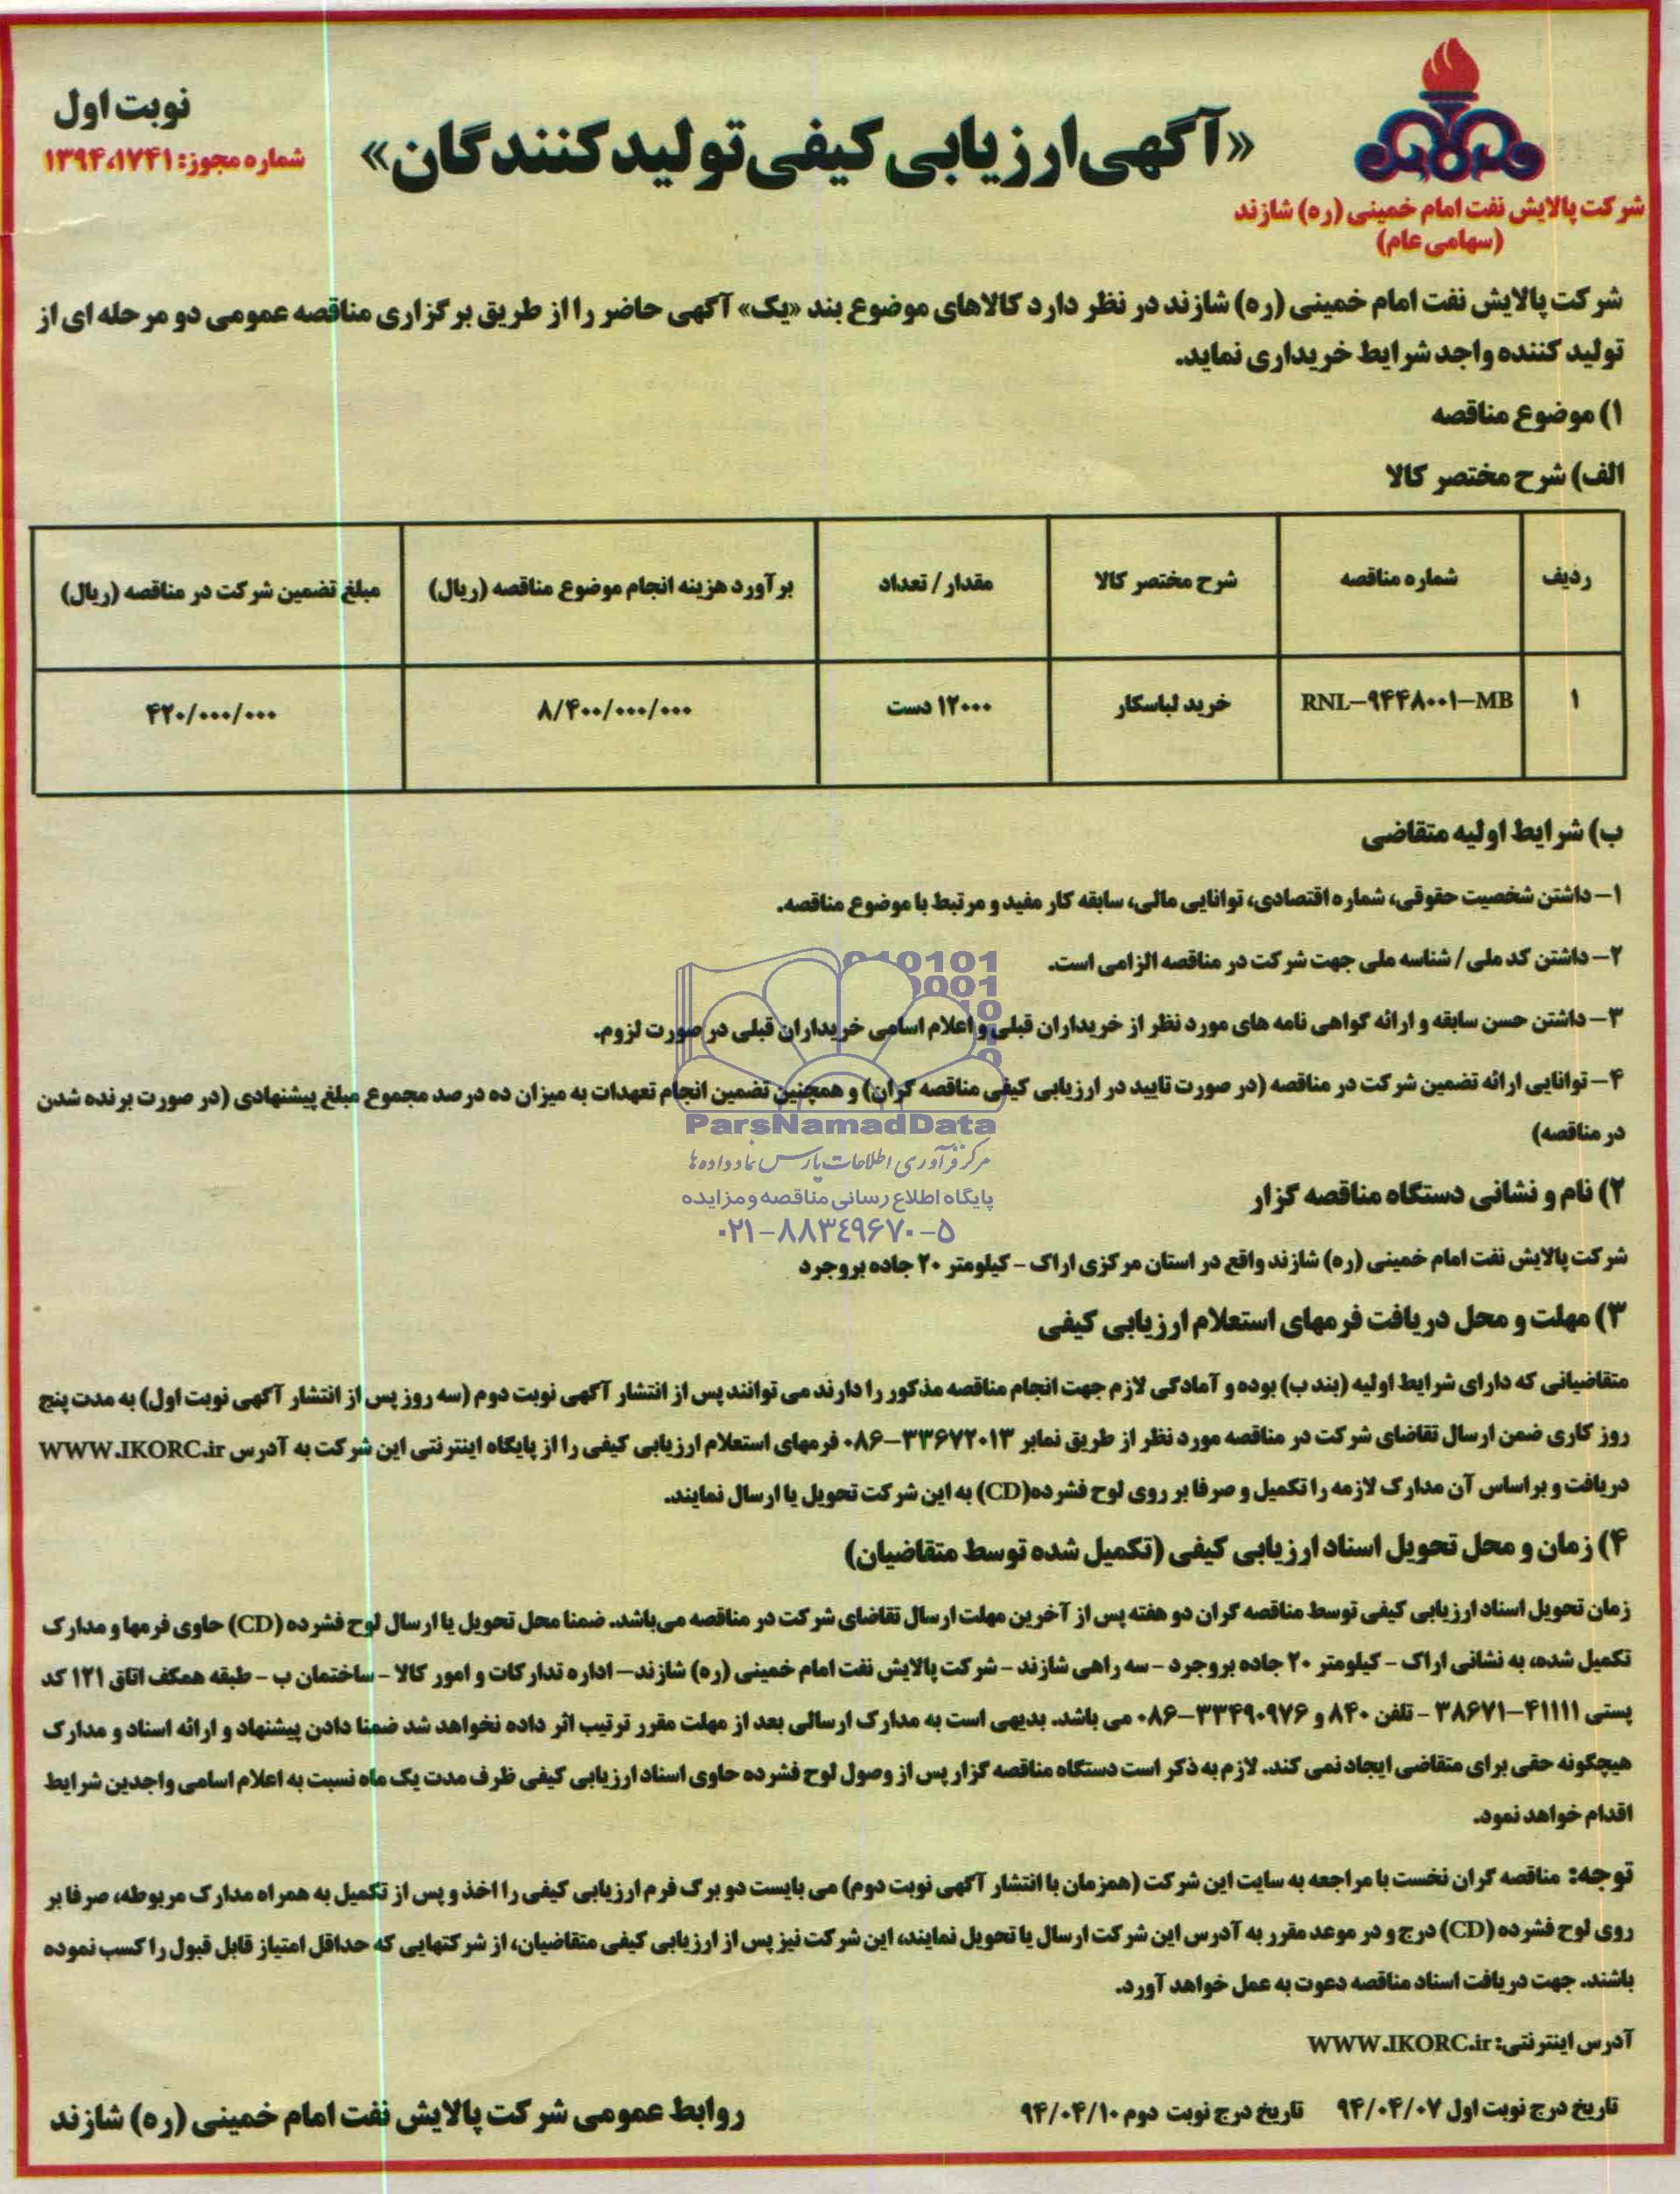 شرکت پالایش نفت امام خمینی (ره) شازند
(سهامی عام)
«آگهی ارزیابی کیفی تولید کنندگان»
نوبت اول
شماره مجوز: ۱۳۹۴،۱۷۴۱
شرکت پالایش نفت امام خمینی (ره) شازند در نظر دارد کالاهای موضوع بند «یک» آگهی حاضر را از طریق برگزاری مناقصه عمومی دو مرحله ای از
تولید کننده واجد شرایط خریداری نماید.
۱) موضوع مناقصه
الف) شرح مختصر کالا
ردیف شماره مناقصه شرح مختصر کالا مقدار / تعداد برآورد هزینه انجام موضوع مناقصه (ریال) مبلغ تضمین شرکت در مناقصه (ریال)
۱ RNL-۹۴۴۸۰۰۱-MB خرید لباسکار ۱۲۰۰۰ دست ۸/۴۰۰/۰۰۰/۰۰۰ ۴۲۰/۰۰۰/۰۰۰
ب) شرایط اولیه متقاضی
۱- داشتن شخصیت حقوقی، شماره اقتصادی، توانایی مالی، سابقه کار مفید و مرتبط با موضوع مناقصه.
۲- داشتن کد ملی / شناسه ملی جهت شرکت در مناقصه الزامی است.
۳- داشتن حسن سابقه و ارائه گواهی نامه های مورد نظر از خریداران قبلی و اعلام اسامی خریداران قبلی در صورت لزوم.
۴- توانایی ارائه تضمین شرکت در مناقصه (در صورت تایید در ارزیابی کیفی مناقصه گران) و همچنین تضمین انجام تعهدات به میزان ده درصد مجموع مبلغ پیشنهادی (در صورت برنده شدن
در مناقصه)
ParsNamadData
مرکز فرآوری اطلاعات پارس نماد داده ها
پایگاه اطلاع رسانی مناقصه و مزایده
۰۲۱-۸۸۳۴۹۶۷۰-۵
۲) نام و نشانی دستگاه مناقصه گزار
شرکت پالایش نفت امام خمینی (ره) شازند واقع در استان مرکزی اراک - کیلومتر ۲۰ جاده بروجرد
۳) مهلت و محل دریافت فرمهای استعلام ارزیابی کیفی
متقاضیانی که دارای شرایط اولیه (بند ب) بوده و آمادگی لازم جهت انجام مناقصه مذکور را دارند می توانند پس از انتشار آگهی نوبت دوم (سه روز پس از انتشار آگهی نوبت اول) به مدت پنج
روز کاری ضمن ارسال تقاضای شرکت در مناقصه مورد نظر از طریق نمابر ۳۳۶۷۲۰۱۳-۰۸۶ فرمهای استعلام ارزیابی کیفی را از پایگاه اینترنتی این شرکت به آدرس WWW.IKORC.ir
دریافت و براساس آن مدارک لازمه را تکمیل و صرفا بر روی لوح فشرده(CD) به این شرکت تحویل یا ارسال نمایند.
۴) زمان و محل تحویل اسناد ارزیابی کیفی (تکمیل شده توسط متقاضیان)
زمان تحویل اسناد ارزیابی کیفی توسط مناقصه گران دو هفته پس از آخرین مهلت ارسال تقاضای شرکت در مناقصه می‌باشد. ضمنا محل تحویل یا ارسال لوح فشرده (CD) حاوی فرمها و مدارک
تکمیل شده، به نشانی اراک - کیلومتر ۲۰ جاده بروجرد - سه راهی شازند - شرکت پالایش نفت امام خمینی (ره) شازند- اداره تدارکات و امور کالا - ساختمان ب - طبقه همکف اتاق ۱۲۱ کد
پستی ۴۱۱۱۱-۳۸۶۷۱ - تلفن ۸۴۰ و ۳۳۴۹۰۹۷۶-۰۸۶ می باشد. بدیهی است به مدارک ارسالی بعد از مهلت مقرر ترتیب اثر داده نخواهد شد ضمنا دادن پیشنهاد و ارائه اسناد و مدارک
هیچگونه حقی برای متقاضی ایجاد نمی کند. لازم به ذکر است دستگاه مناقصه گزار پس از وصول لوح فشرده حاوی اسناد ارزیابی کیفی ظرف مدت یک ماه نسبت به اعلام اسامی واجدین شرایط
اقدام خواهد نمود.
توجه: مناقصه گران نخست با مراجعه به سایت این شرکت (همزمان با انتشار آگهی نوبت دوم) می بایست دو برگ فرم ارزیابی کیفی را اخذ و پس از تکمیل به همراه مدارک مربوطه، صرفا بر
روی لوح فشرده (CD) درج و در موعد مقرر به آدرس این شرکت ارسال یا تحویل نمایند، این شرکت نیز پس از ارزیابی کیفی متقاضیان، از شرکتهایی که حداقل امتیاز قابل قبول را کسب نموده
باشند. جهت دریافت اسناد مناقصه دعوت به عمل خواهد آورد.
آدرس اینترنتی: WWW.IKORC.ir
تاریخ درج نوبت اول ۹۴/۰۴/۰۷ تاریخ درج نوبت دوم ۹۴/۰۴/۱۰
روابط عمومی شرکت پالایش نفت امام خمینی (ره) شازند